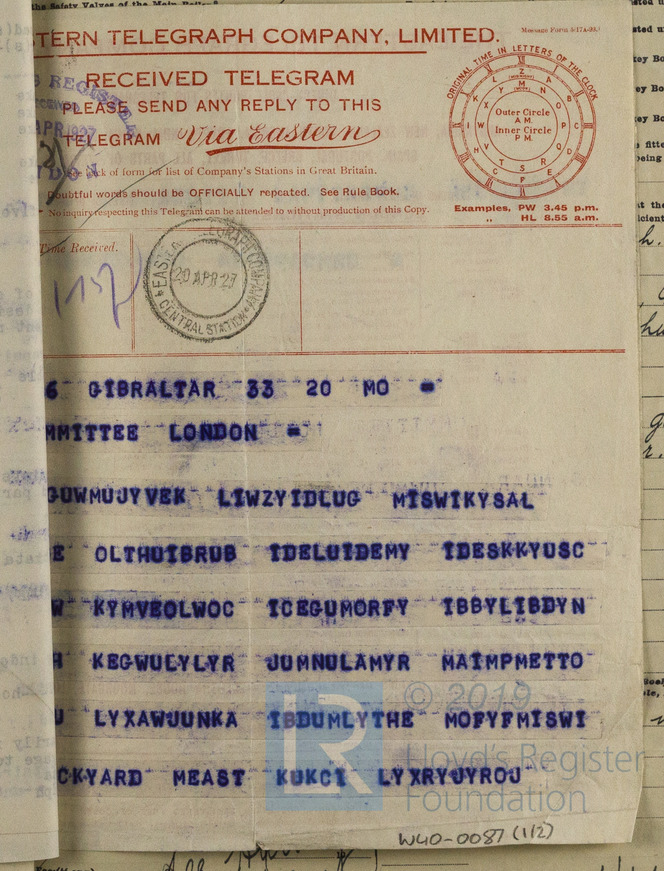 the Safety Valves of the Main Boiler?
TERN TELEGRAPH COMPANY, LIMITED.
RECEIVED TELEGRAM
PLEASE SEND ANY REPLY TO THIS
TELEGRAM Via Eastern
of form for list of Company's Stations in Great Britain.
Doubtful words should be OFFICIALLY repeated. See Rule Book.
No inquiry respecting this Telegram can be attended to without production of this Copy.
ORIGINAL TIME IN LETTERS OF THE CLOCK
Outer Circle
A.M.
Inner Circle
P.M.
Examples, PW 3.45 p.m.
" HL 8.55 a.m.
Time Received.
EASTERN TELEGRAPH COMPANY
20 APR 27
CENTRAL STATION
6 GIBRALTAR 33 20 MO =
MMITTEE LONDON =
GUWMUJYVEK LIWZYIDLUG MISWIKYSAL
E OLTHUIBRUB IDELUIDEMY IDESKKYUSC
W KYMVEOLWOC ICEGUMORFY IBBYLIBDYN
H KEGWULYLYR JUMNULAMYR MAIMPMETTO
U LYXAWJUNKA IBDUMLYTHE MOFYFMISWI
CKYARD MEAST KUKCI LYXRYJYROJ
© 2019
LR
Lloyd's Register
Foundation
W40-0087 (1/2)